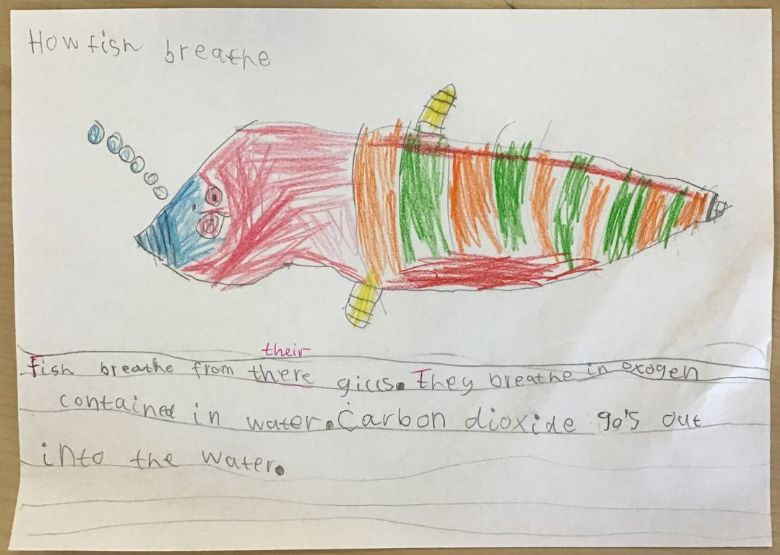 How fish breathe
their
Fish breathe from there gills. They breathe in oxogen
contained in water. Carbon dioxide go's out
into the water.